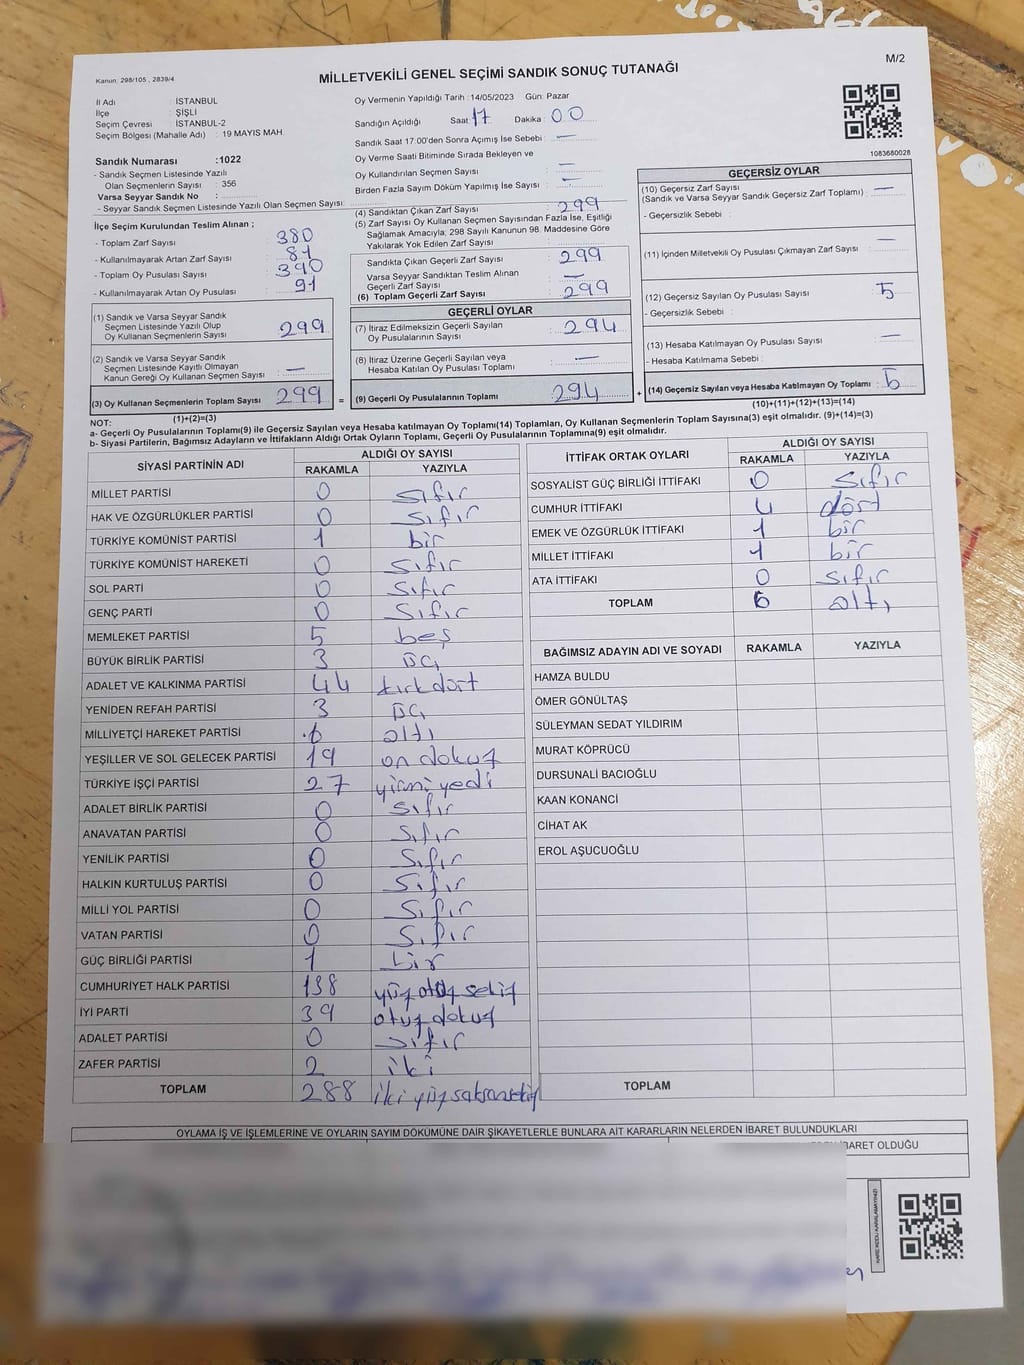 M/2
Kanun: 298/105 , 2839/4
MİLLETVEKİLİ GENEL SEÇİMİ SANDIK SONUÇ TUTANAĞI
İl Adı : İSTANBUL
İlçe : ŞİŞLİ
Seçim Çevresi : İSTANBUL-2
Seçim Bölgesi (Mahalle Adı) : 19 MAYIS MAH.
Sandık Numarası :1022
- Sandık Seçmen Listesinde Yazılı
Olan Seçmenlerin Sayısı : 356
Varsa Seyyar Sandık No :
- Seyyar Sandık Seçmen Listesinde Yazılı Olan Seçmen Sayısı:
Oy Vermenin Yapıldığı Tarih :14/05/2023 Gün: Pazar
Sandığın Açıldığı Saat: 17 Dakika : 00
Sandık Saat 17:00'den Sonra Açımış İse Sebebi : —
Oy Verme Saati Bitiminde Sırada Bekleyen ve
Oy Kullandırılan Seçmen Sayısı : —
Birden Fazla Sayım Döküm Yapılmış İse Sayısı : —
1083680028
İlçe Seçim Kurulundan Teslim Alınan ;
- Toplam Zarf Sayısı : 380
- Kullanılmayarak Artan Zarf Sayısı : 81
- Toplam Oy Pusulası Sayısı : 390
- Kullanılmayarak Artan Oy Pusulası : 91
(1) Sandık ve Varsa Seyyar Sandık
Seçmen Listesinde Yazılı Olup
Oy Kullanan Seçmenlerin Sayısı : 299
(2) Sandık ve Varsa Seyyar Sandık
Seçmen Listesinde Kayıtlı Olmayan
Kanun Gereği Oy Kullanan Seçmen Sayısı : —
(3) Oy Kullanan Seçmenlerin Toplam Sayısı : 299
(1)+(2)=(3)
(4) Sandıktan Çıkan Zarf Sayısı : 299
(5) Zarf Sayısı Oy Kullanan Seçmen Sayısından Fazla İse, Eşitliği
Sağlamak Amacıyla; 298 Sayılı Kanunun 98. Maddesine Göre
Yakılarak Yok Edilen Zarf Sayısı :
Sandıkta Çıkan Geçerli Zarf Sayısı : 299
Varsa Seyyar Sandıktan Teslim Alınan
Geçerli Zarf Sayısı : —
(6) Toplam Geçerli Zarf Sayısı : 299
GEÇERLİ OYLAR
(7) İtiraz Edilmeksizin Geçerli Sayılan
Oy Pusulalarının Sayısı : 294
(8) İtiraz Üzerine Geçerli Sayılan veya
Hesaba Katılan Oy Pusulası Toplamı : —
= (9) Geçerli Oy Pusulalarının Toplamı : 294
GEÇERSİZ OYLAR
(10) Geçersiz Zarf Sayısı : —
(Sandık ve Varsa Seyyar Sandık Geçersiz Zarf Toplamı)
- Geçersizlik Sebebi :
(11) İçinden Milletvekili Oy Pusulası Çıkmayan Zarf Sayısı : —
(12) Geçersiz Sayılan Oy Pusulası Sayısı : 5
- Geçersizlik Sebebi :
(13) Hesaba Katılmayan Oy Pusulası Sayısı : —
- Hesaba Katılmama Sebebi :
+ (14) Geçersiz Sayılan veya Hesaba Katılmayan Oy Toplamı : 5
(10)+(11)+(12)+(13)=(14)
NOT:
a- Geçerli Oy Pusulalarının Toplamı(9) ile Geçersiz Sayılan veya Hesaba katılmayan Oy Toplamı(14) Toplamları, Oy Kullanan Seçmenlerin Toplam Sayısına(3) eşit olmalıdır. (9)+(14)=(3)
b- Siyasi Partilerin, Bağımsız Adayların ve İttifakların Aldığı Ortak Oyların Toplamı, Geçerli Oy Pusulalarının Toplamına(9) eşit olmalıdır.
SİYASİ PARTİNİN ADI ALDIĞI OY SAYISI
RAKAMLA YAZIYLA
MİLLET PARTİSİ 0 sıfır
HAK VE ÖZGÜRLÜKLER PARTİSİ 0 sıfır
TÜRKİYE KOMÜNİST PARTİSİ 1 bir
TÜRKİYE KOMÜNİST HAREKETİ 0 sıfır
SOL PARTİ 0 sıfır
GENÇ PARTİ 0 sıfır
MEMLEKET PARTİSİ 5 beş
BÜYÜK BİRLİK PARTİSİ 3 üç
ADALET VE KALKINMA PARTİSİ 44 kırkdört
YENİDEN REFAH PARTİSİ 3 üç
MİLLİYETÇİ HAREKET PARTİSİ 6 altı
YEŞİLLER VE SOL GELECEK PARTİSİ 19 on dokuz
TÜRKİYE İŞÇİ PARTİSİ 27 yirmi yedi
ADALET BİRLİK PARTİSİ 0 sıfır
ANAVATAN PARTİSİ 0 sıfır
YENİLİK PARTİSİ 0 sıfır
HALKIN KURTULUŞ PARTİSİ 0 sıfır
MİLLİ YOL PARTİSİ 0 sıfır
VATAN PARTİSİ 0 sıfır
GÜÇ BİRLİĞİ PARTİSİ 1 bir
CUMHURİYET HALK PARTİSİ 138 yüz otuz sekiz
İYİ PARTİ 39 otuz dokuz
ADALET PARTİSİ 0 sıfır
ZAFER PARTİSİ 2 iki
TOPLAM 288 iki yüz seksensekiz
İTTİFAK ORTAK OYLARI ALDIĞI OY SAYISI
RAKAMLA YAZIYLA
SOSYALİST GÜÇ BİRLİĞİ İTTİFAKI 0 sıfır
CUMHUR İTTİFAKI 4 dört
EMEK VE ÖZGÜRLÜK İTTİFAKI 1 bir
MİLLET İTTİFAKI 1 bir
ATA İTTİFAKI 0 sıfır
TOPLAM 6 altı
BAĞIMSIZ ADAYIN ADI VE SOYADI RAKAMLA YAZIYLA
HAMZA BULDU
ÖMER GÖNÜLTAŞ
SÜLEYMAN SEDAT YILDIRIM
MURAT KÖPRÜCÜ
DURSUNALİ BACIOĞLU
KAAN KONANCİ
CİHAT AK
EROL AŞUCUOĞLU
TOPLAM
OYLAMA İŞ VE İŞLEMLERİNE VE OYLARIN SAYIM DÖKÜMÜNE DAİR ŞİKAYETLERLE BUNLARA AİT KARARLARIN NELERDEN İBARET BULUNDUKLARI
İBARET OLDUĞU
KARE KODU KARALAMAYINIZ!